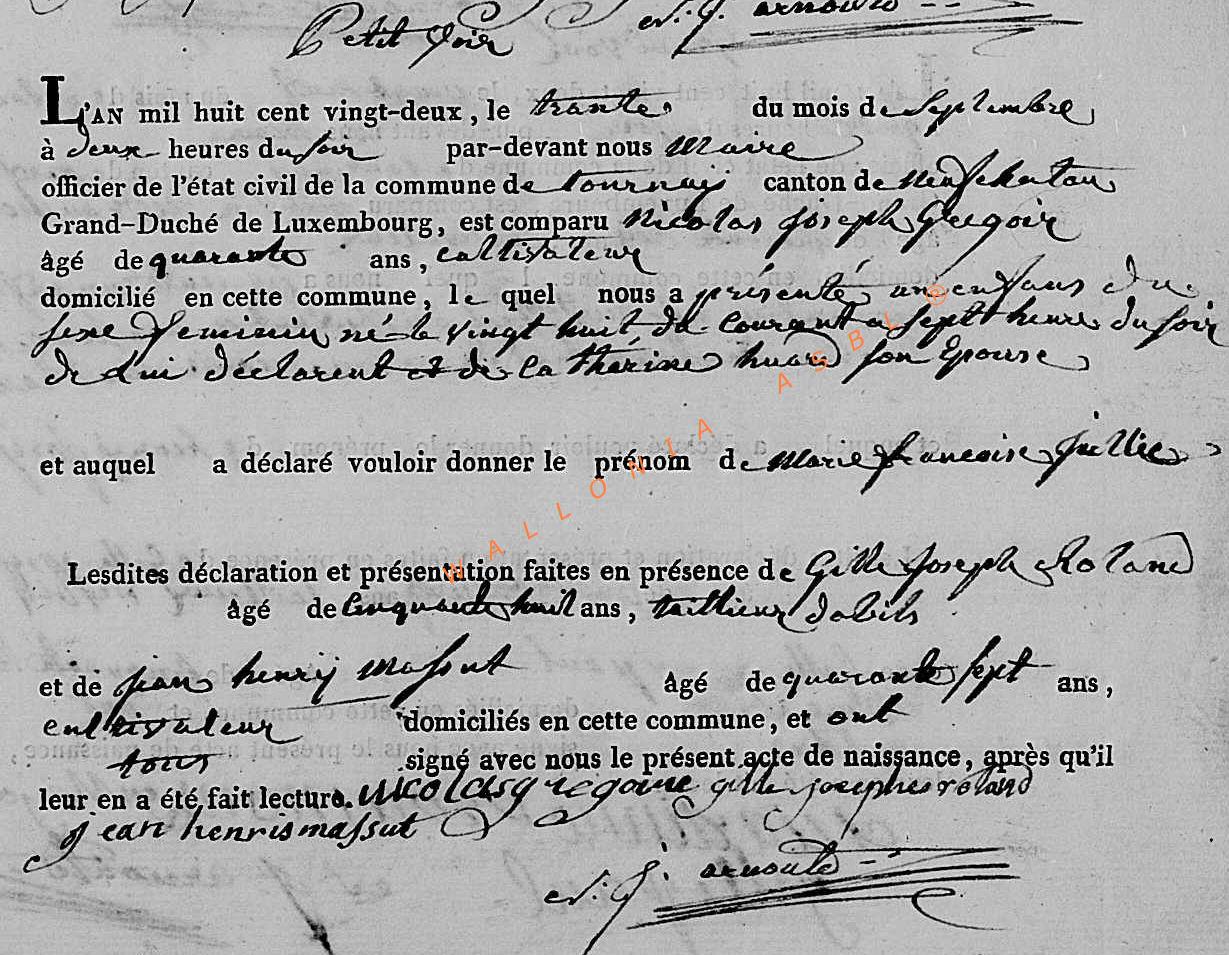 Petit Voir N. J. arnould
L'AN mil huit cent vingt-deux, le trante du mois de Septembre
à deux heures du soir par-devant nous Maire
officier de l'état civil de la commune de tournay canton de Neufchatau
Grand-Duché de Luxembourg, est comparu Nicolas joseph Gregoir
âgé de quarante ans, cultivateur
domicilié en cette commune, le quel nous a présenté un enfans du
sexe feminin né le vingt huit du Courant a sept heure du soir
de lui déclarent et de Catherine huard son Epouse
et auquel a déclaré vouloir donner le prénom de Marie francoise jullie
Lesdites déclaration et présentation faites en présence de Gille Joseph Roland
âgé de Cinquante huit ans, taillieur dabils
et de jean henry Massut âgé de quarante sept ans,
cultivateur domiciliés en cette commune, et ont
tous signé avec nous le présent acte de naissance, après qu'il
leur en a été fait lecture. Nicolas gregoire gille joseph roland
jean henri massut
N. J. arnould
WALLONIA ASBL ©